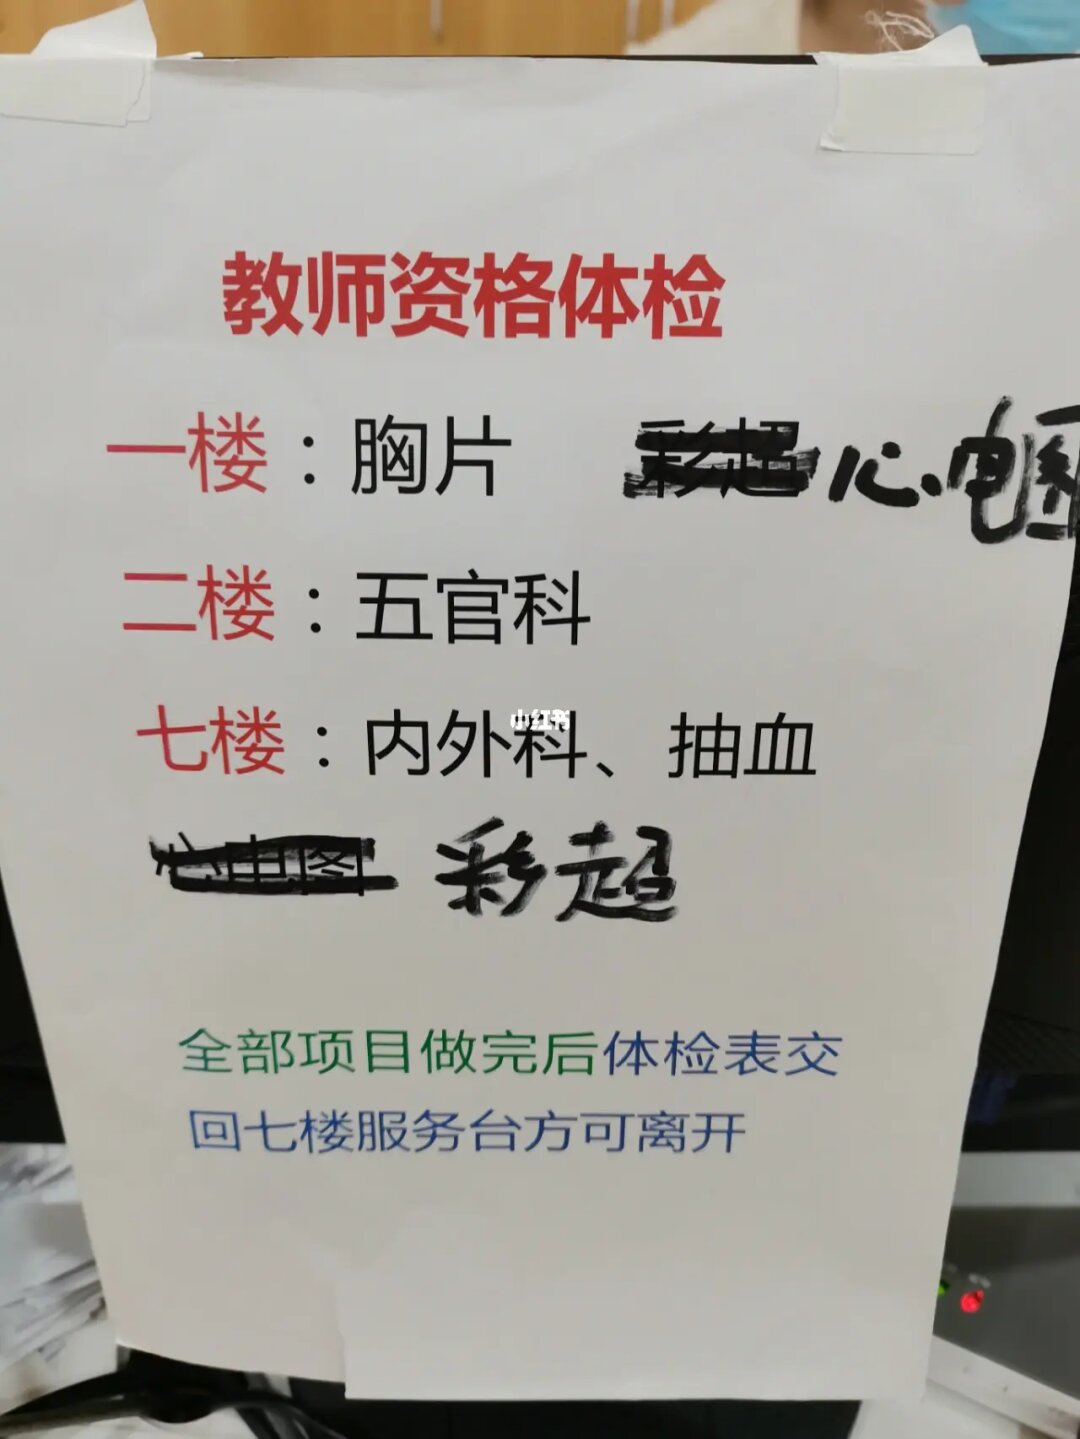 教师资格体检
一楼：胸片 彩超 心电图
二楼：五官科
七楼：内外科、抽血
小红书
心电图 彩超
全部项目做完后体检表交
回七楼服务台方可离开